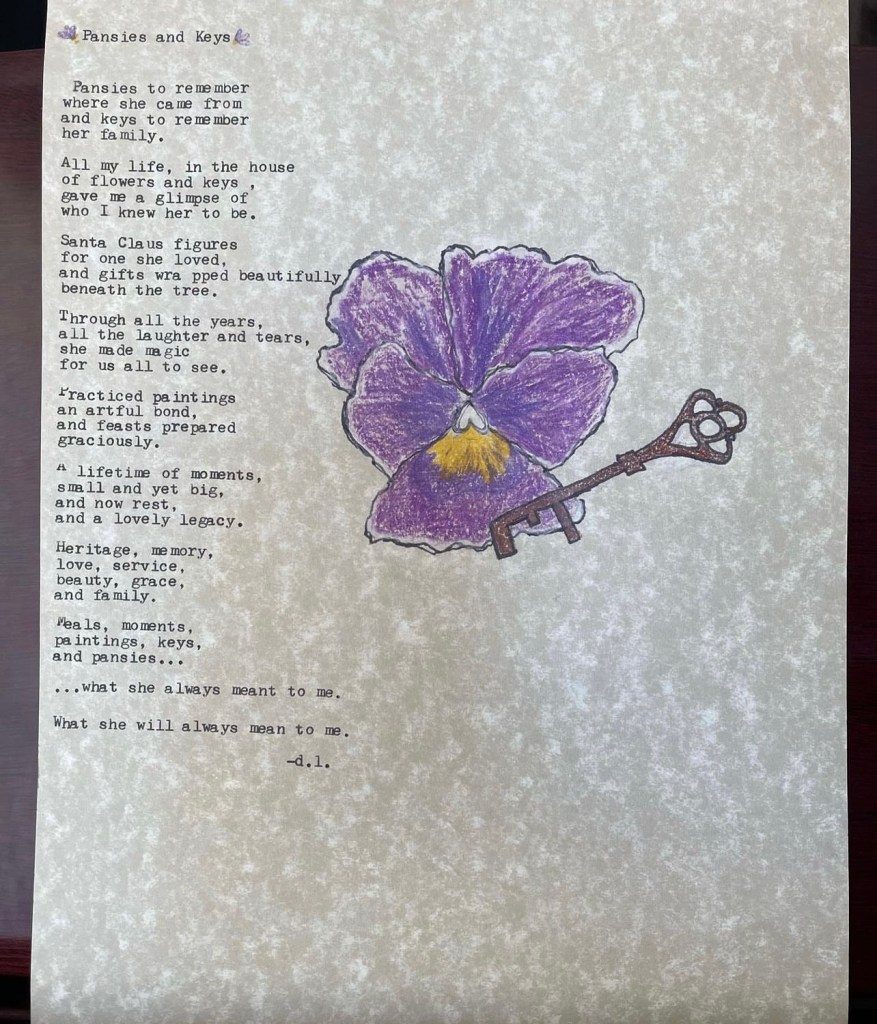 Pansies and Keys
Pansies to remember
where she came from
and keys to remember
her family.
All my life, in the house
of flowers and keys ,
gave me a glimpse of
who I knew her to be.
Santa Claus figures
for one she loved,
and gifts wra pped beautifully
beneath the tree.
Through all the years,
all the laughter and tears,
she made magic
for us all to see.
Practiced paintings
an artful bond,
and feasts prepared
graciously.
A lifetime of moments,
small and yet big,
and now rest,
and a lovely legacy.
Heritage, memory,
love, service,
beauty, grace,
and family.
Meals, moments,
paintings, keys,
and pansies...
...what she always meant to me.
What she will always mean to me.
-d.l.